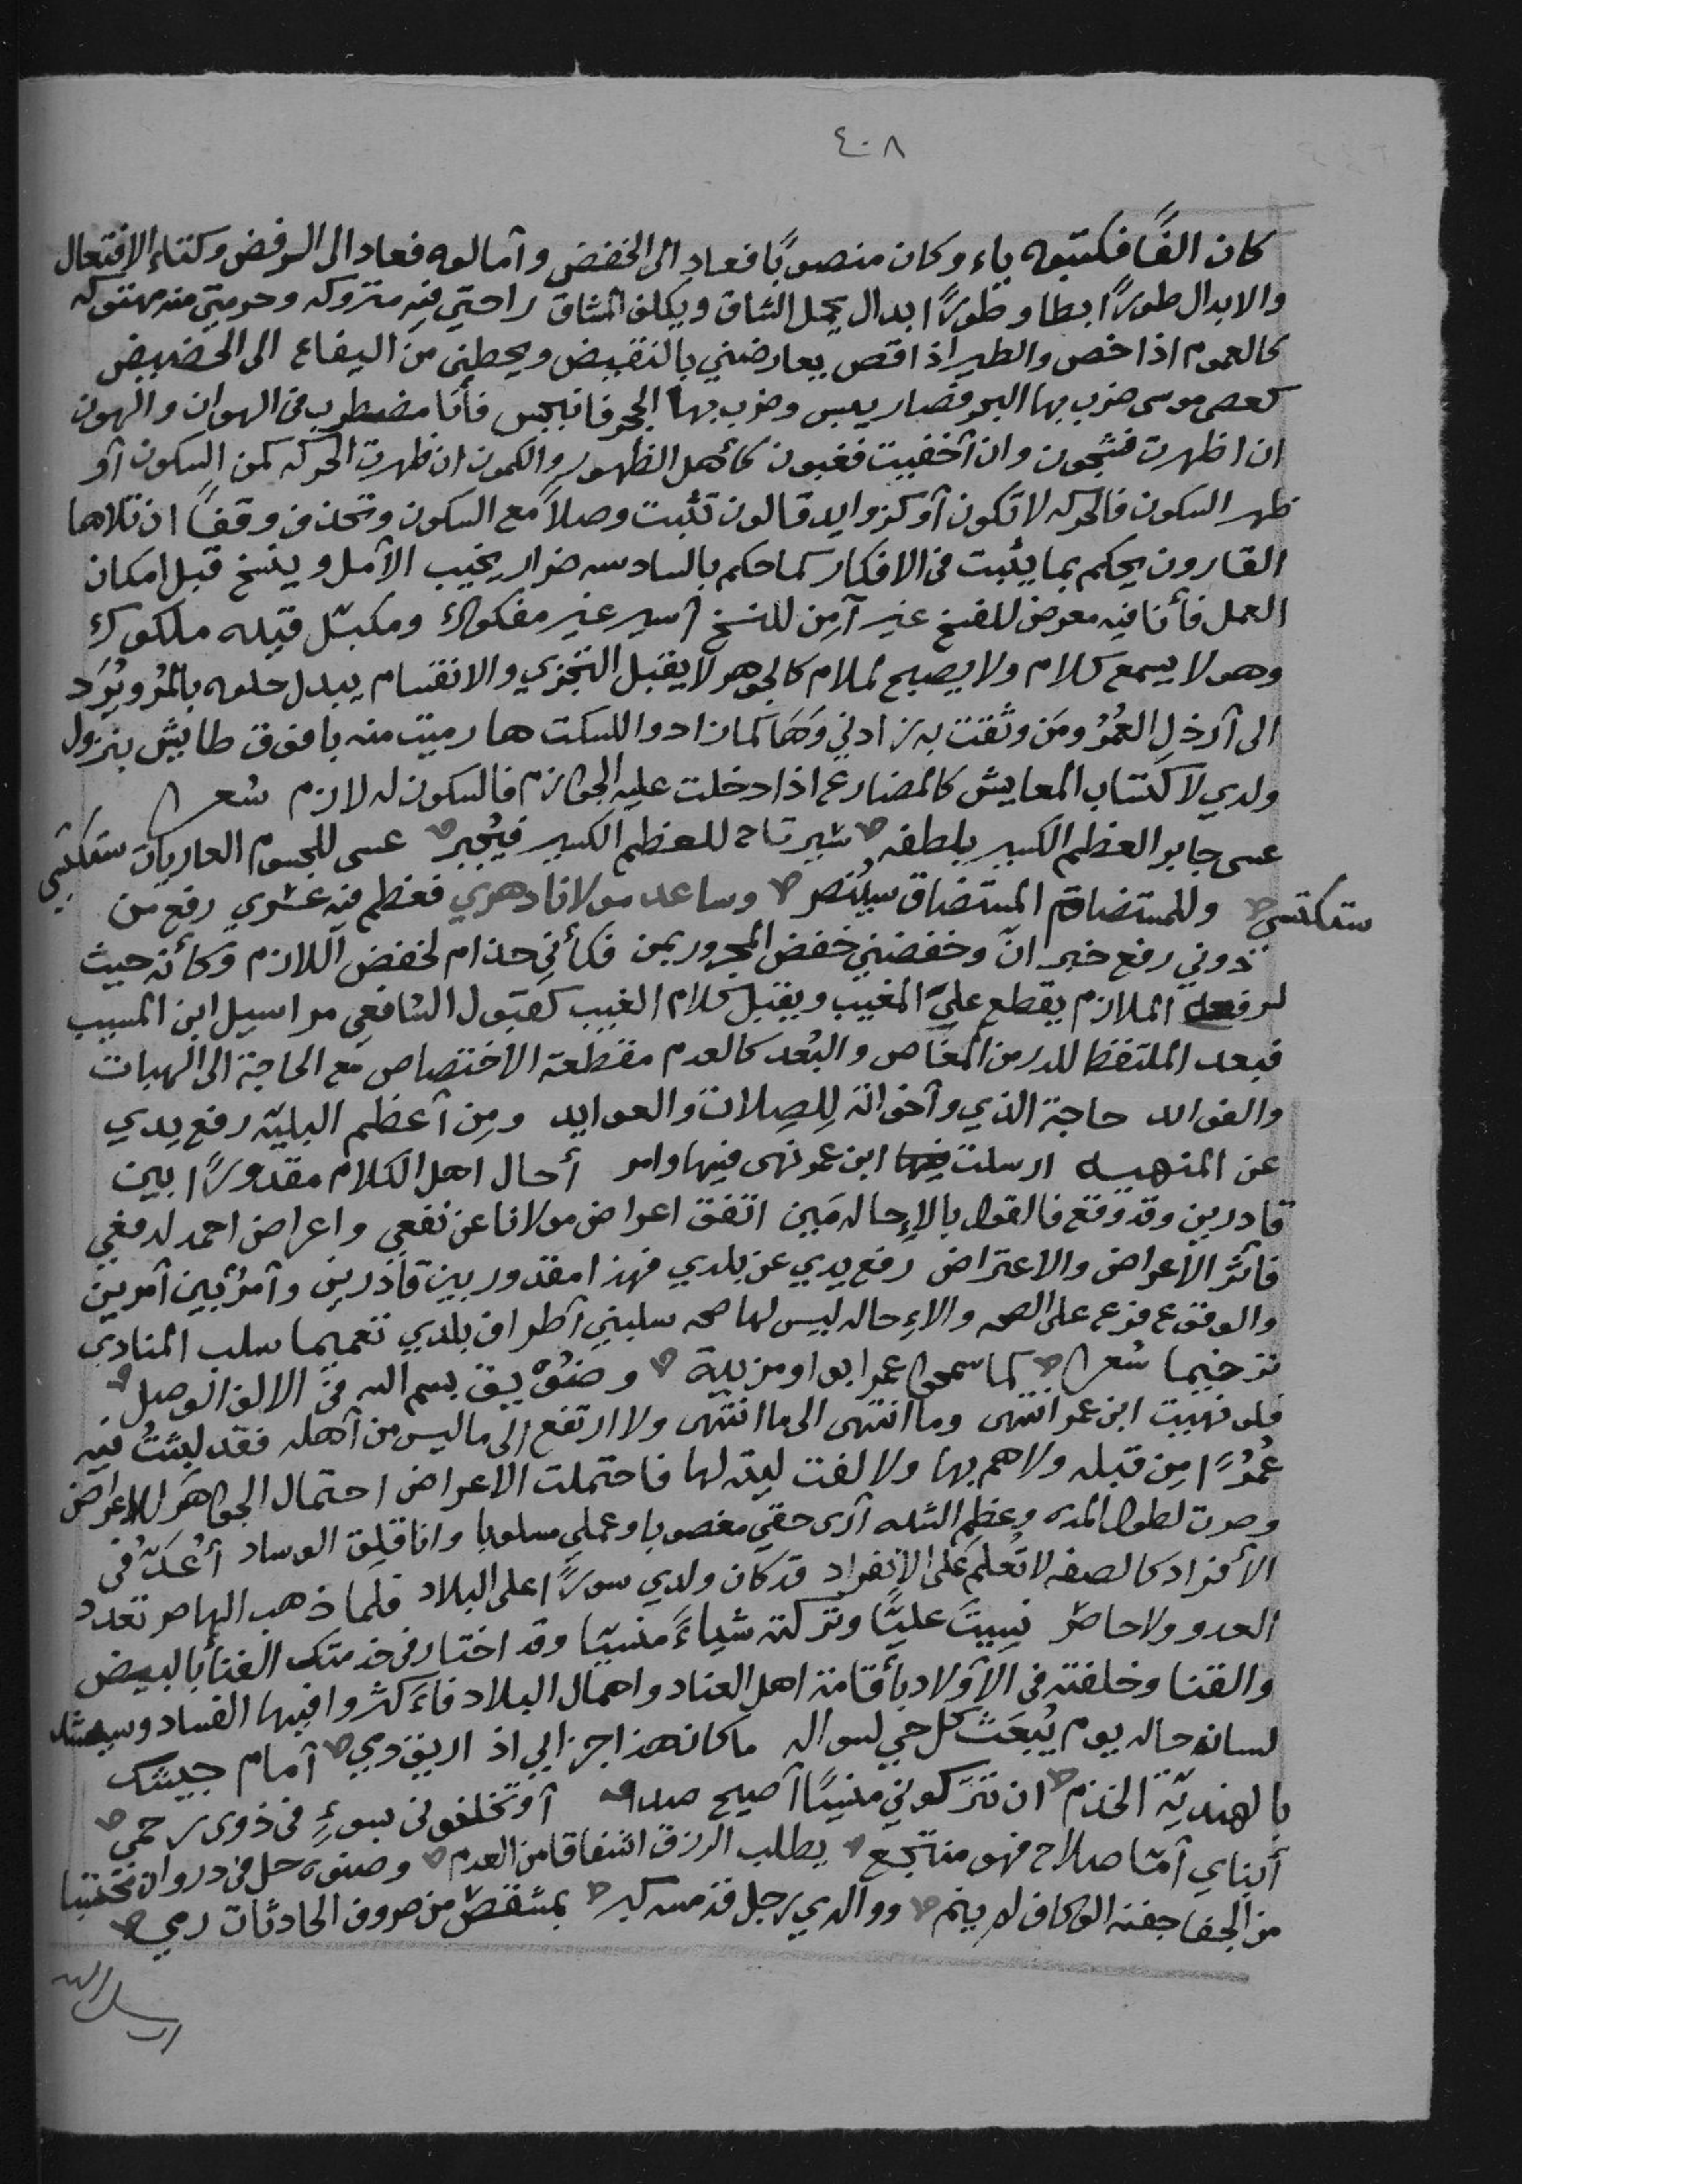 ٤٠٨
كان الفًا فكتبوه ياء وكان منصوبًا فعاد الى الخفض وآمالوه فعاد الى الرفض وكتاء الافتعال
والابدال طورًا بطا و طورًا ابدال يحمل الشاق ويكلف المشاق راحتي فيه متروكه وحرمتي منه مهتوكه
كالعموم اذا خص والطير اذا قص يعارضني بالنقيض ويحطني من اليفاع الى الحضيض
كعصى موسى ضرب بها البحر فصار يبس وضرب بها الحجر فانبجس فأنا مضطرب في الهوان والهون
ان اظهرت فشجون وان آخفيت فغبون كأهل الظهور والكمون ان ظهرت الحركه كمن السكون آو
ظهر السكون فالحركه لا تكون آو كزوايد قالون تثبت وصلاً مع السكون وتحذف وقفًا ان تلاها
القارون يحكم بما يثبت في الافكار كما حكم بالسادسه ضرار يخيب الآمل وينسخ قبل امكان
العمل فأنا فيه معرض للفسخ غير آمِن للنسخ آسير غير مفكوك ومكبّل قيده ملكوك
وهو لا يسمع كلام ولا يصيح لملام كالجوهر لا يقبل التجزي والانقسام يبدل حلوه بالمُر ويُرَد
الى آرذل العُمُر ومَن وثقت به زادني وَهَما كما زادوا للسكت ها رميت منه بافوق طايش بنزول
ولدي لاكتساب المعايش كالمضارع اذا دخلت عليه الجوازم فالسكون له لازم شعر
عسى جابر العظم الكسير بلطفه سيرتاح للعظم الكسير فيُجبر عسى للجسوم العاريات ستكتسي
ستكتسي وللمستضام المستضاق سيُنصر وساعد مولانا دهري فعظم فيه عشري رفع من
دوني رفع خبر انّ وخفضني خفض المجرور بمن فكأني حذام لخفض اللازم وكأنه حيث
لرفعه الملازم يقطع عليّ المغيب ويقبل كلام الغيب كقبول الشافعي مراسيل ابن المسيب
فبعد الملتفظ للدر من المغاص والبُعد كالعدم مقطعة الاختصاص مع الحاجة الى الهبات
والفوالد حاجة الذي وآخوانة لِلصِلات والعوايد ومِن آعظم البليّه رفع يدي
عن المنهيه ارسلت ابن عمر نهى فيها وامر أحال اهل الكلام مقدورًا بين
قادرين وقد وقع فالقول بالإحاله مَين اتفق اعراض مولانا عن نفعي واعراض احمد لدفعي
فآثر الاعراض والاعتراض رفع يدي عن بلدي فهذا مقدور بين قادرين وآمرٌ بين آمرين
والوقوع فرع على الصحه والاءِحاله ليس لها صحه سلبني آطراف بلدي تعميما سلب المنادى
ترخيما شعر كما سمحوا عمرا بواو مزيدة وضُوْيق بسم الله في الالف الوصل
فلو نهيت ابن عمر انتهى وما انتهى الى ما انتهى ولا ارتفع الى ما ليس من آهله فقد لبثتُ فيه
عُمُرًا مِن قبله ولا هم بها ولا لفت ليته لها فاحتملت الاعراض احتمال الجواهر للاعراض
وصرت لطول المده وعظم الشده آرى حقي مغصوبا وعملي مسلوبا وانا قلِق الوساد أُعَدّ في
الأفراد كالصفه لا تُعلم على الانفراد قد كان ولدي سورًا على البلاد فلما ذهب الهاصر تعدد
العدو ولا حاصر نسِيتَ عليًّا وتركته شياءً منسيّا وقد اختار في خدمتك الفنأ بالبيض
والقنا وخلفته في الآولاد بأقامة اهل العناد واهمال البلاد فاءَكثروا فيها الفساد وسينشد
لسانه حاله يوم يُبعَث كل حي لسواله ما كان هذا جزايي اذ اريق دمي آمام جيشك
بالهنديّة الخذم ان تتركوني منسيًّا آصيح صدا آو تخلفوني بسوءٍ في ذوى رحمي
أبناي آمّا صلاح فهو منتجع يطلب الرزق اشفاقا من العدم وصنوه حل في دروان تحتبنا
من الجفا جفنه الوكاف لم ينم ووالدي رجل قد مسه كبر بمشقص من صروف الحادثات رمي
ارسل الله